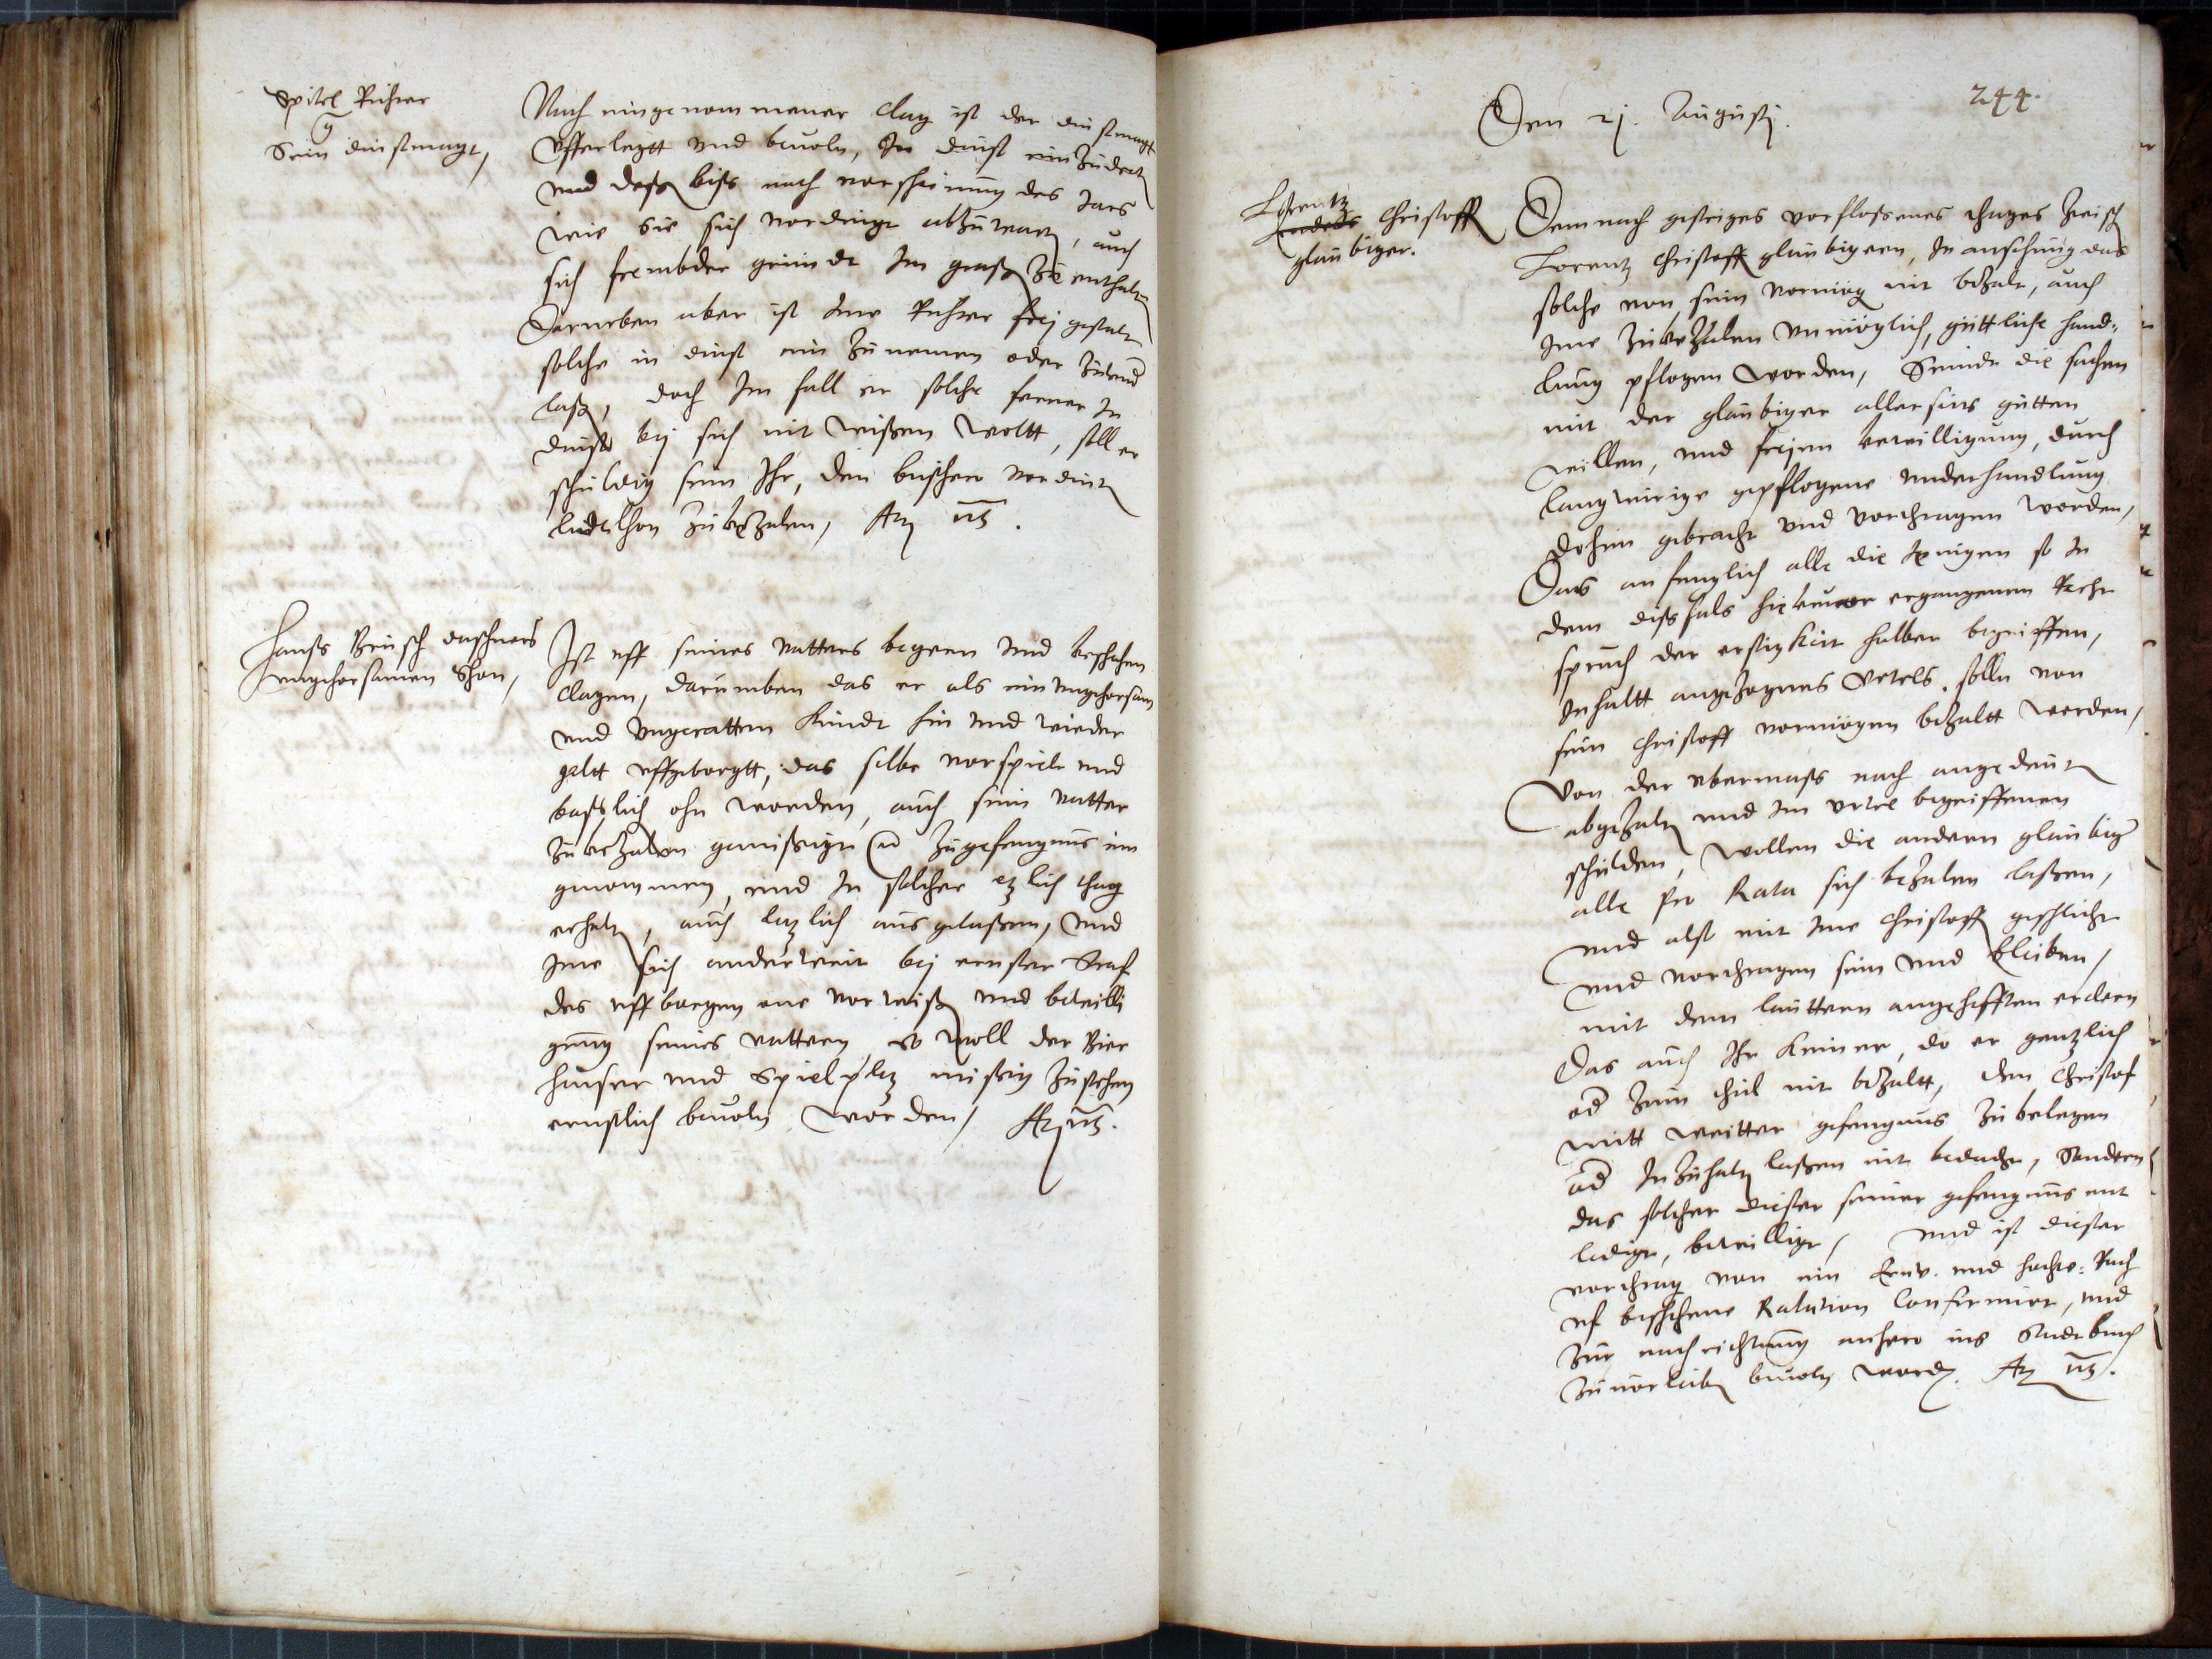 Spitel Richter
g
Sein dinstmagt,
Nach eingenommener clag ist der dinstmagt
Vfferlegtt vnd beuoln, Irn dinst einzudretten
vnd deßen biß nach vorscheinung des Jars
wie sie sich vordingt abzuwartn, auch
sich frembder gründt Im graßen zu enthaltn
Darneben aber ist dem Richter frej gestalt
solche in dinst ein zu nemen oder
laßen, doch Im fall er solche ferner In
dinste bej sich nit wißen woltt, soll er
schuldig sein Ihr, den bißhero vordintn
lidelhon zubezalen, Act. uts.
Hanß
vngehorsamen Shon,
Ist vff seines vatters begern vnd beschehen
clagen, darumben das er als ein vngehorsam
vnd vngeratten kindt hin vnd wieder
geltt vffgeborgtt, das selbe vorspielt vnd
boßlich ohn worden, auch sein vatter
zubezalen gemüßiget zu gefengnus ein
genommen, vnd In solcher etzlich thag
erhaltn, auch letzlich ausgelaßen, vnd
Ime sich anderweit bej ernster straf
des vffborgen one vorwißen vnd bewilli
gung seines vattern, so woll der Bier
heuser vnd Spielpletz müßig zustehen
ernstlich beuoln worden, Act. uts.
244.
Den 21. Augusti.
Lorentz
Christoff
gläubiger.
Demnach gestriges vorfloßenes thages zwischn
Lorentz Christoff gläubigern, In ansehung das
solche von sein vormög nit bezalt, auch
Ime zubezalen vnmöglich, güttliche hand-
lung pflogen worden, Seindt die sachen
mit der gläubiger allerseits gutten
willen, vnd freien bewilligung, durch
langwirige gepflogene vnderhandlung
dohin gebracht vnd vorthragen worden,
Das anfenglich alle die Jenigen so In
dem dißfals hieuor ergangenem Recht
spruch der erstigkeit halber begriffen,
Inhaltt angezognes Vrtels, solln von
sein Christoff vormögen bezaltt werden,
Von der vbermaß nach angedeut
abgezaltn vnd Im vrtel begriffenen
schulden, wollen die andern gläubiger
alle pro Rata sich bezalen laßen,
vnd alßo mit Ime Christoff geschlicht
vnd vorthragen sein vnd bleiben,
mit dem lauttern angehefften erclern
Das auch Ihr keiner, do er gentzlich
od zum theil nit bezaltt, den Christof
mitt weitter gefengnus zubelegen
od Inzuhaltn laßen nit bedacht, Sondern
das solcher dießer seiner gefengnus ent
ledigt, bewilligt, vnd ist dießer
vorthrag von ein Ernu. vnd hochw: Rath
vf beschehene Relation Confirmiert, vnd
zur nachrichtung anhero ins Stadtbuch
zuuorleibn beuoln wordn. Act. uts.